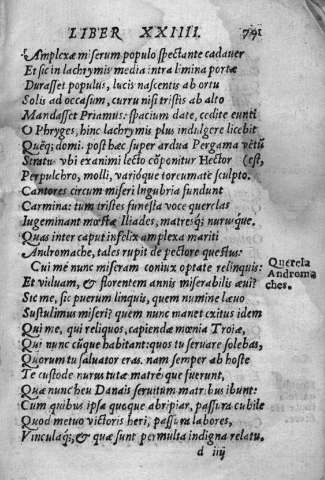 LIBER XXIIII. 791
Amplexæ miserum populo spectante cadauer
Et sic in lachrymis media intra limina portæ
Durasset populus, lucis nascentis ab ortu
Solis ad occasum, curru nisi tristis ab alto
Mandasset Priamus: spacium date, cedite eunti
O Phryges, hinc lachrymis plus indulgere licebit
Quēq; domi. post hæc super ardua Pergama vētū
Stratus vbi exanimi lecto cōponitur Hector (est,
Perpulchro, molli, varioq́ue toreumate sculpto.
Cantores circum miseri lugubria fundunt
Carmina: tum tristes funesta voce querelas
Iugeminant mœstæ Iliades, matresq; nurusque.
Quas inter caput infelix amplexa mariti
Andromache, tales rupit de pectore questus:
Cui me nunc miseram coniux optate relinquis:
Et viduam, & florentem annis miserabilis æui?
Sic me, sic puerum linquis, quem numine læuo
Sustulimus miseri? quem nunc manet exitus idem
Qui me, qui reliquos, capiendæ mœnia Troiæ,
Qui nunc cūque habitant: quos tu seruare solebas,
Quorum tu saluator eras. nam semper ab hoste
Te custode nurus tutæ matresque fuerunt,
Quæ nunc heu Danais seruitum matribus ibunt:
Cum quibus ipsa quoque abripiar, passura cubile
Quod metuo victoris heri, passura labores,
Vinculaq;, & quæ sunt permulta indigna relatu.
d iiij
Querela
Androma
ches.